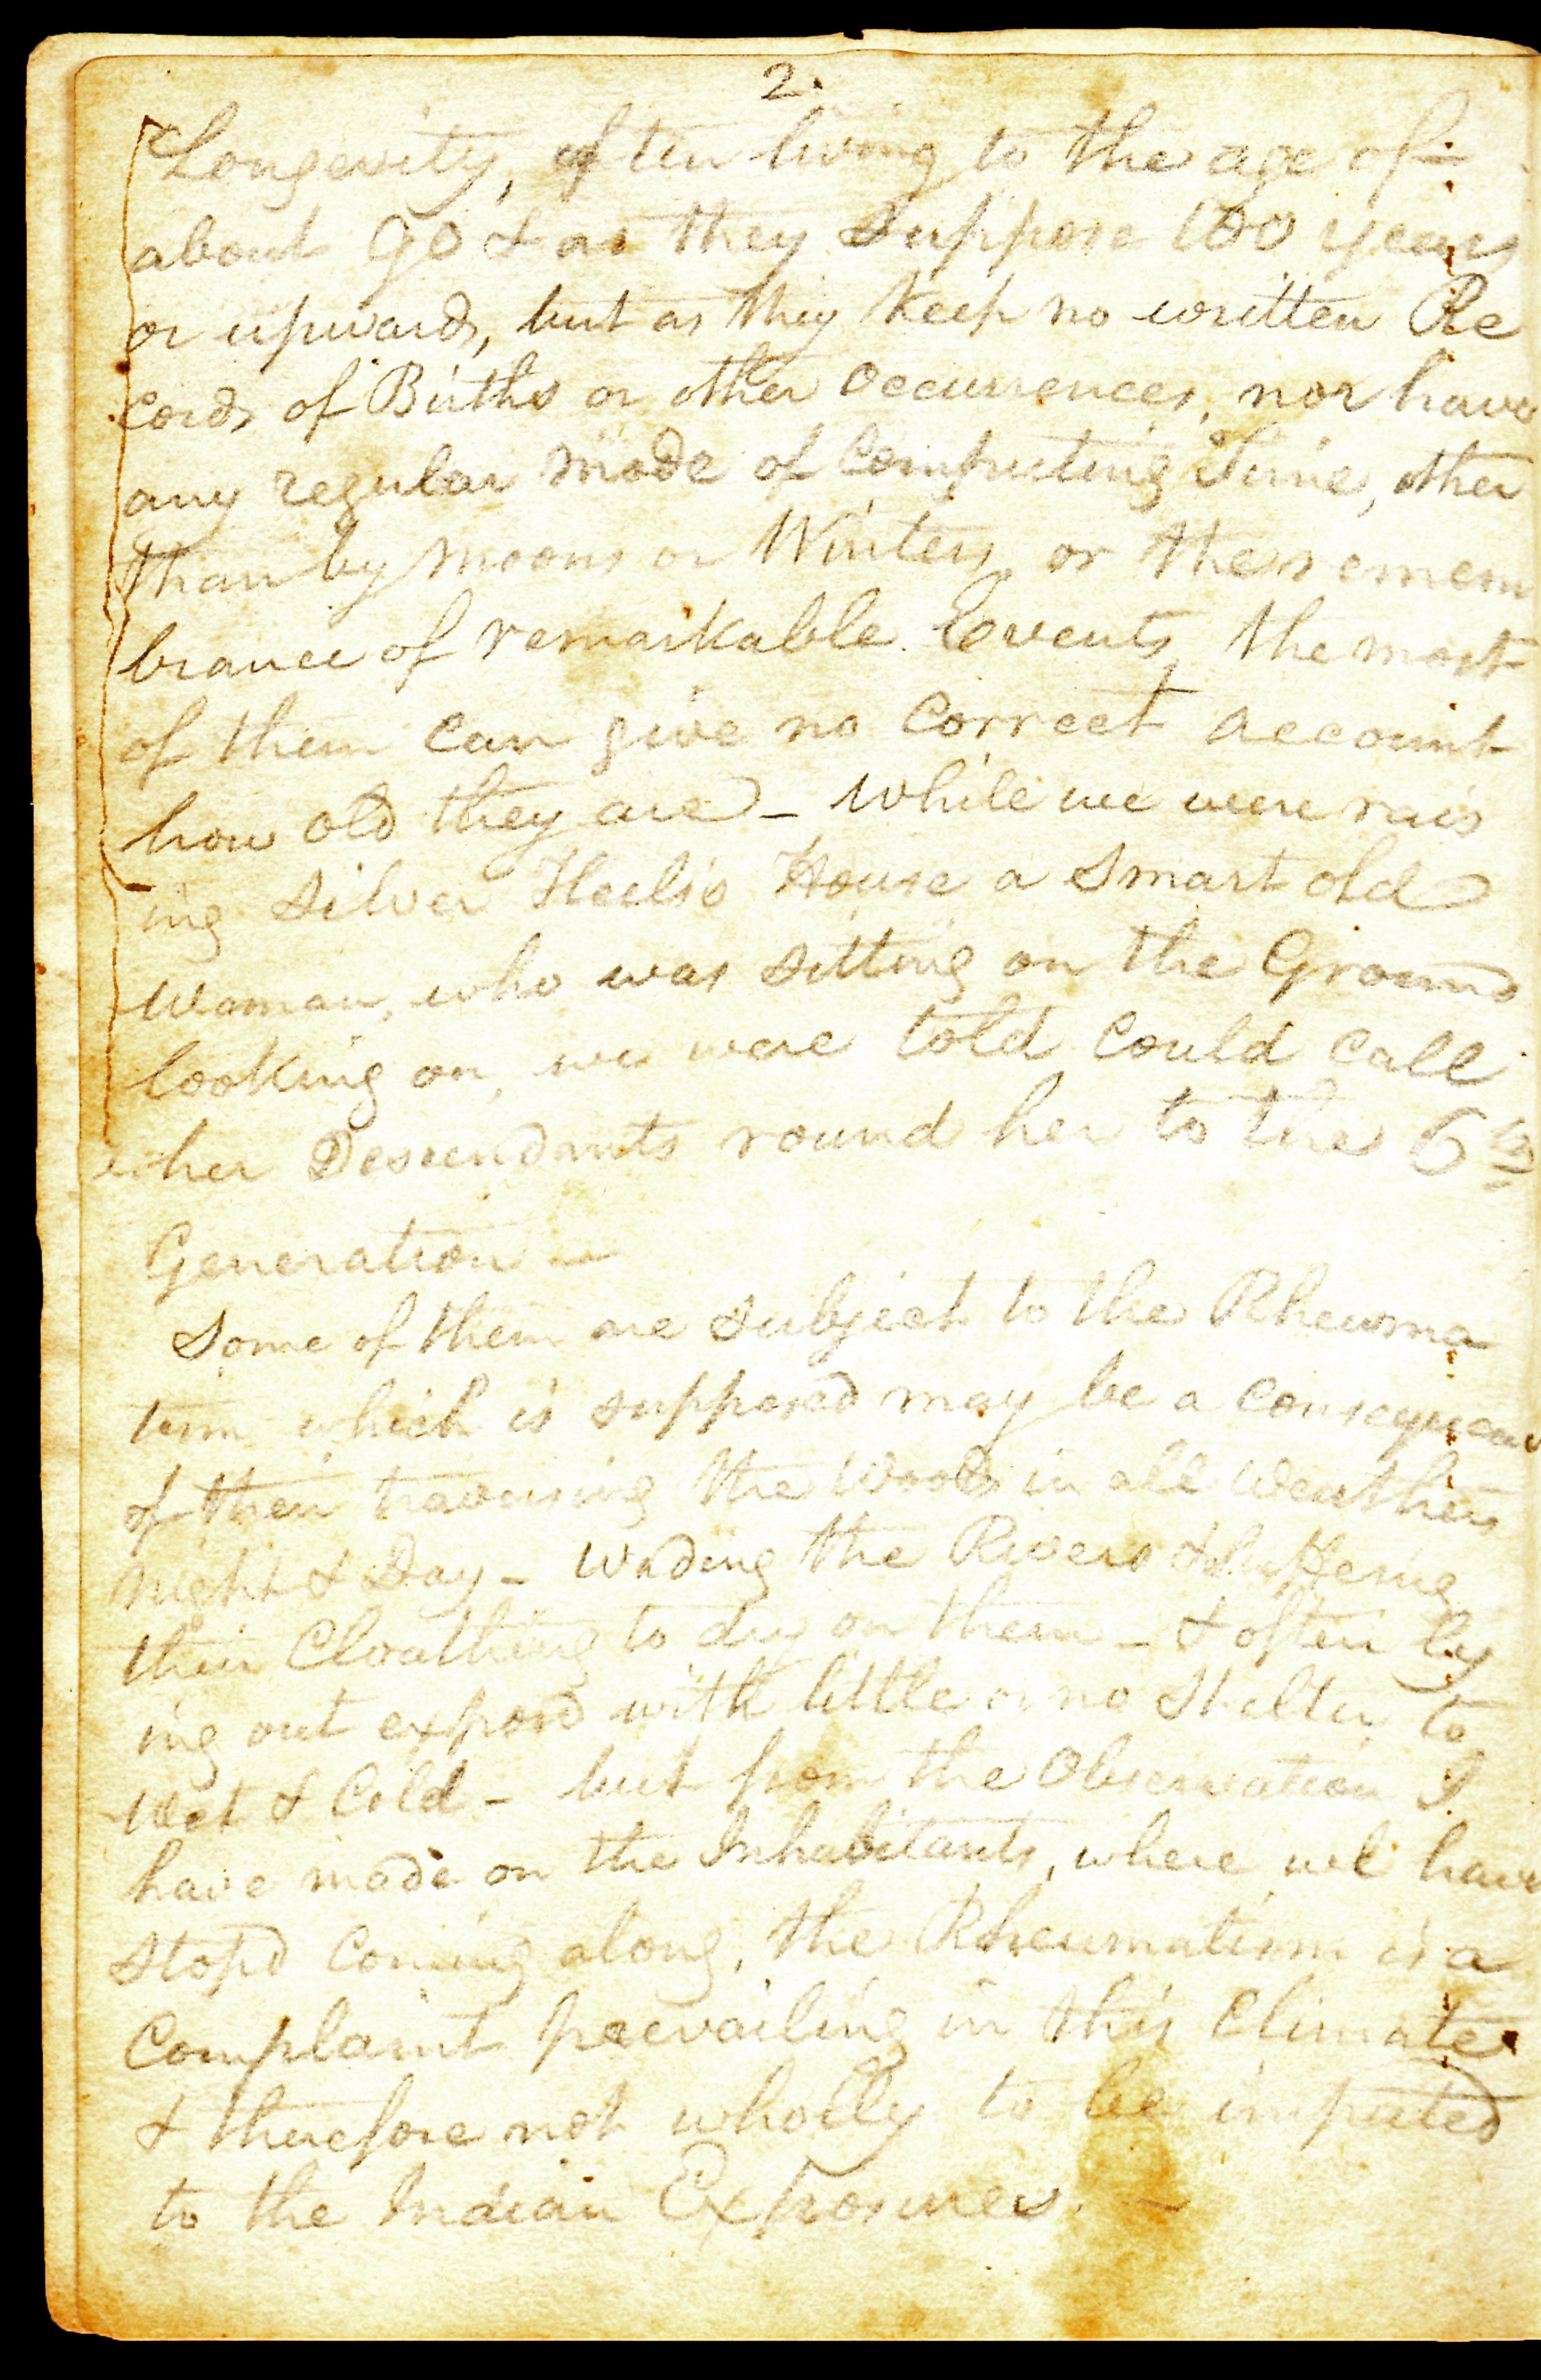 2.
Longevity, often living to the age of
about 90 & as they Suppose 100 years
or upwards, but as they keep no written Re
cords of Births or other Occurrences, nor have
any regular mode of Computing Time, other
than by moons or Winters, or the remem
brance of remarkable Events, the most
of them can give no Correct account
how old they are - While we were rais
ing Silver Heels's House a Smart old
Woman, who was Sitting on the Ground
looking on, we were told Could Call
her Descendants round her to the 6th
Generation -
Some of them are Subject to the Rheuma
tism which is supposed may be a Consequence
of their traversing the Woods in all Weathers
Night & Day - Wading the Rivers & Suffering
their Cloathing to dry on them - & often ly
ing out exposd with little or no Shelter to
Wet & Cold - but from the Observation I
have made on the Inhabitants, where we have
Stopd Coming along, the Rheumatism is a
Complaint prevailing in this Climate
& therefore not wholly to be imputed
to the Indian Exposures. -